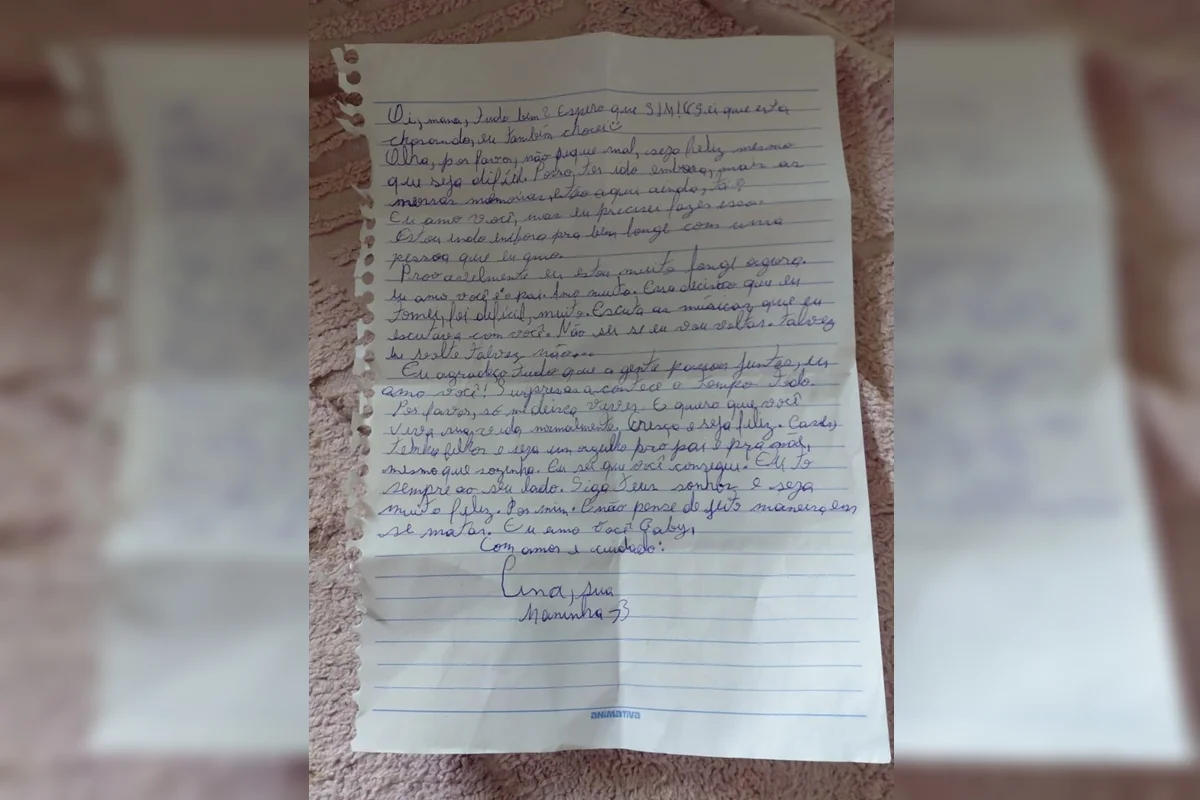 Oi, mana, tudo bem? Espero que SIM! Sei que esta
chorando, eu também chorei
Olha, por favor, não fique mal, seja feliz mesmo
que seja difícil. Posso ter ido embora, mais as
nossas memórias, estão aqui ainda, tá?
Eu amo você, mas eu preciser fazer isso.
Estou indo embora pra bem longe com uma
pessoa que eu amo.
Provavelmente eu estou muito longe agora.
Eu amo você e o pai. Amo muito. Essa decisão que eu
tomei, foi difícil, muito. Escuta as músicas que eu
escutava com você. Não sei se eu vou voltar. Talvez
eu volte talvez não...
Eu agradeço tudo que a gente passou juntas, eu
amo você! Surpresas acontece o tempo todo.
Por favor, só me deixa viver. E quero que você
viva sua vida normalmente. Cresça e seja feliz. Case,
tenha filhos e seja um orgulho pro pai e pra mãe,
mesmo que sozinha. Eu sei que você consegue. EU to
sempre ao seu lado. Siga teus sonhos e seja
muito feliz. Por mim. E não pense de jeito maneira em
se matar. Eu amo você Gaby,
Com amor e cuidado:
Ana, sua
Maninha <3
ANIMATIVA